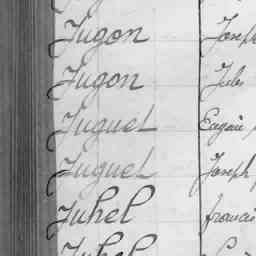 Jugon Joseph
Jugon Jules
Juguel Eugène
Juguel Joseph
Juhel francis
Juhel